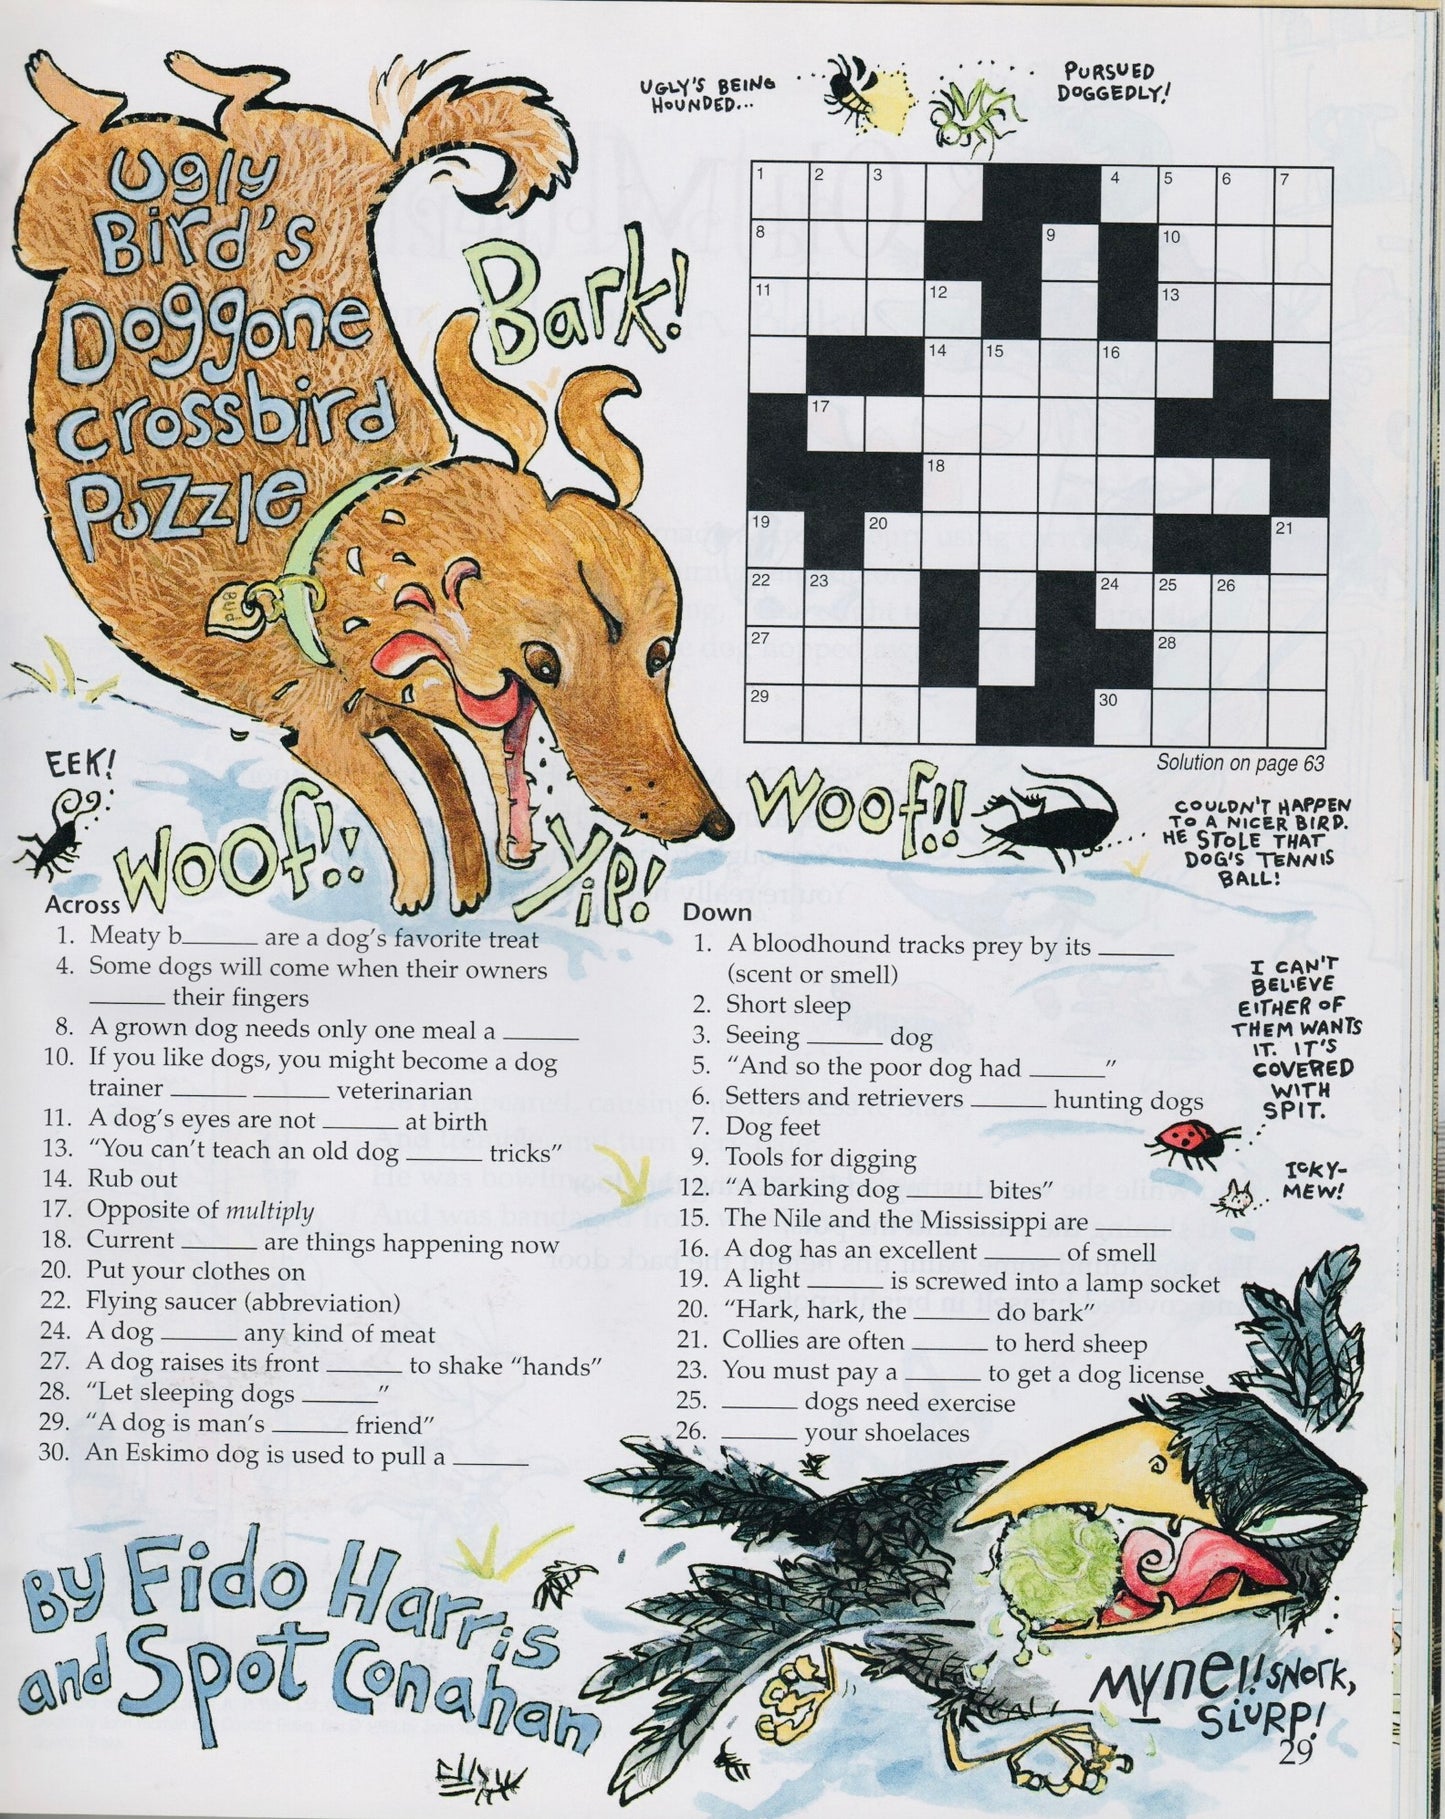 UGLY'S BEING
HOUNDED...
PURSUED
DOGGEDLY!
Ugly
Bird's
Doggone
crossbird
Puzzle
Bark!
Bud
1 2 3 4 5 6 7
8 9 10
11 12 13
14 15 16
17
18
19 20 21
22 23 24 25 26
27 28
29 30
Solution on page 63
EEK!
WOOF!!
Yip!
WOOF!!
COULDN'T HAPPEN
TO A NICER BIRD.
HE STOLE THAT
DOG'S TENNIS
BALL!
Across
1. Meaty b_____ are a dog's favorite treat
4. Some dogs will come when their owners
_____ their fingers
8. A grown dog needs only one meal a _____
10. If you like dogs, you might become a dog
trainer _____ _____ veterinarian
11. A dog's eyes are not _____ at birth
13. "You can't teach an old dog _____ tricks"
14. Rub out
17. Opposite of multiply
18. Current _____ are things happening now
20. Put your clothes on
22. Flying saucer (abbreviation)
24. A dog _____ any kind of meat
27. A dog raises its front _____ to shake "hands"
28. "Let sleeping dogs _____"
29. "A dog is man's _____ friend"
30. An Eskimo dog is used to pull a _____
Down
1. A bloodhound tracks prey by its _____
(scent or smell)
2. Short sleep
3. Seeing _____ dog
5. "And so the poor dog had _____"
6. Setters and retrievers _____ hunting dogs
7. Dog feet
9. Tools for digging
12. "A barking dog _____ bites"
15. The Nile and the Mississippi are _____
16. A dog has an excellent _____ of smell
19. A light _____ is screwed into a lamp socket
20. "Hark, hark, the _____ do bark"
21. Collies are often _____ to herd sheep
23. You must pay a _____ to get a dog license
25. _____ dogs need exercise
26. _____ your shoelaces
I CAN'T
BELIEVE
EITHER OF
THEM WANTS
IT. IT'S
COVERED
WITH
SPIT.
ICKY-
MEW!
By Fido Harris
and Spot Conahan
MYNE!! SNORK,
SLURP!
29